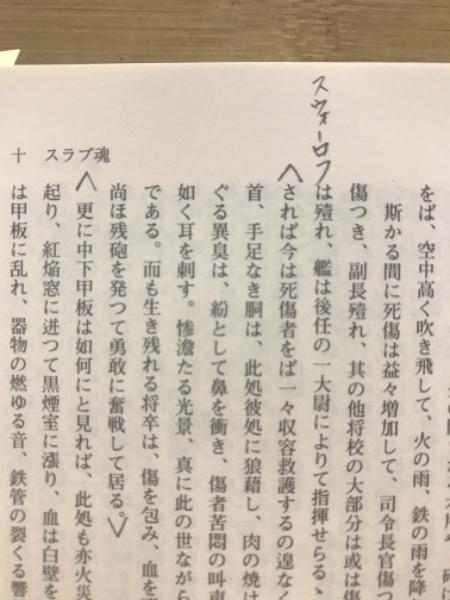 スヴォーロフ
十　スラブ魂
をば、空中高く吹き飛して、火の雨、鉄の雨を降
斯かる間に死傷は益々増加して、司令長官傷つ
傷つき、副長殪れ、其の他将校の大部分は或は傷
は殪れ、艦は後任の一大尉によりて指揮せらるゝ
されば今は死傷者をば一々収容救護するの遑なく
首、手足なき胴は、此処彼処に狼藉し、肉の焼け
ぐる異臭は、紛として鼻を衝き、傷者苦悶の叫声
如く耳を刺す。惨澹たる光景、真に此の世ながら
である。而も生き残れる将卒は、傷を包み、血を
尚ほ残砲を発つて勇敢に奮戦して居る。
更に中下甲板は如何にと見れば、此処も亦火災
起り、紅焔窓に迸つて黒煙室に漲り、血は白壁を
は甲板に乱れ、器物の燃ゆる音、鉄管の裂くる響